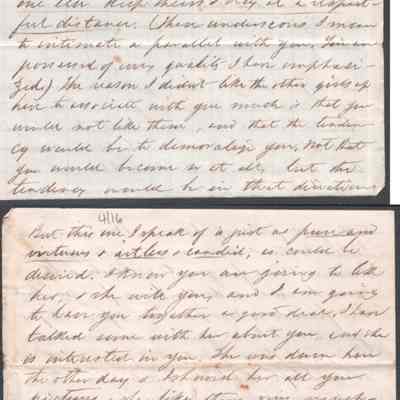 one can keep them only at a respect-
ful distance. (These underscores I mean
to intimate a parallel with you. You are
possessed of every quality I have emphasi-
zed) The reason I didn't like the other girls up
here to associate with you much is that you
would not like them, and that the tenden-
cy would be to demoralize you. Not that
you would become so at all, but the
tendency would be in that direction
4/16
But this one I speak of is just as pure and
virtuous & artless & candid, as could be
desired. I know you are going to like
her, & she will you, and I am going
to have you together a good deal. I have
talked some with her about you, and she
is interested in you. She was down here
the other day & I showed her all your
pictures, she likes